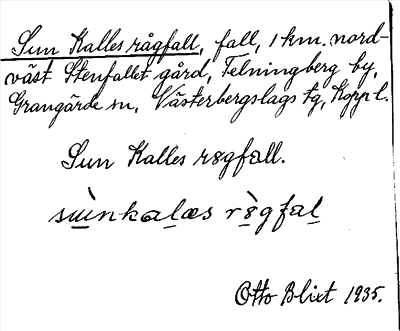 Sun Kalles rågfall, fall, 1 km. nord-
väst Stenfallet gård, Telningberg by,
Grangärde sn, Västerbergslags tg, Kopp. l.
Sun Kalles rågfall.
Otto Blixt 1935.